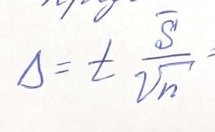 Δ = t S̄ / √n =